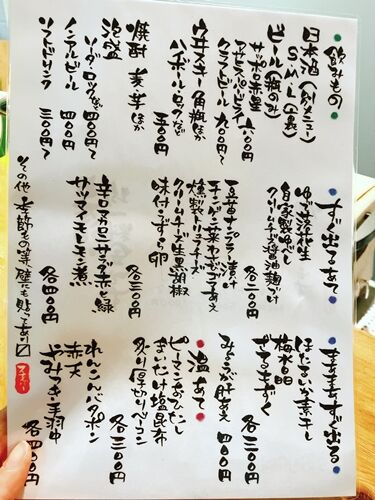 飲みもの
日本酒(別メニュー)
S.M.L(裏)
ビール(瓶のみ)
サッポロ赤星 六〇〇円
アサヒスーパードライ
クラフトビール 九〇〇円〜
ウヰスキー 角瓶ほか
ハイボール・ロックなど
五〇〇円
焼酎 麦 芋 ほか
泡盛
ソーダ・ロックなど 四〇〇円〜
ノンアルビール 四〇〇円
ソフトドリンク 三〇〇円〜
すぐ出るあて
ゆで落花生
自家製ゆべし
クリームチーズ醤油麹づけ
各二〇〇円
豆苗ナンプラー漬け
チンゲン菜わさびごまあえ
燻製トリュフチーズ
クリームチーズ生黒胡椒
味付うずら卵
各三〇〇円
辛口マカロニサラダ赤と緑
サツマイモレモン煮
各四〇〇円
まあまあすぐ出る
ほたるいか素干し
梅水晶
ザーサイ
各三〇〇円
みょうが肝あえ
四〇〇円
温あて
ピーマンおひたし
まいたけ塩昆布
炙り厚切りベーコン
各三〇〇円
れんこんバタポン
赤天
やみつき手羽中
各四〇〇円
その他 季節もの等 壁にも貼ってあり〼